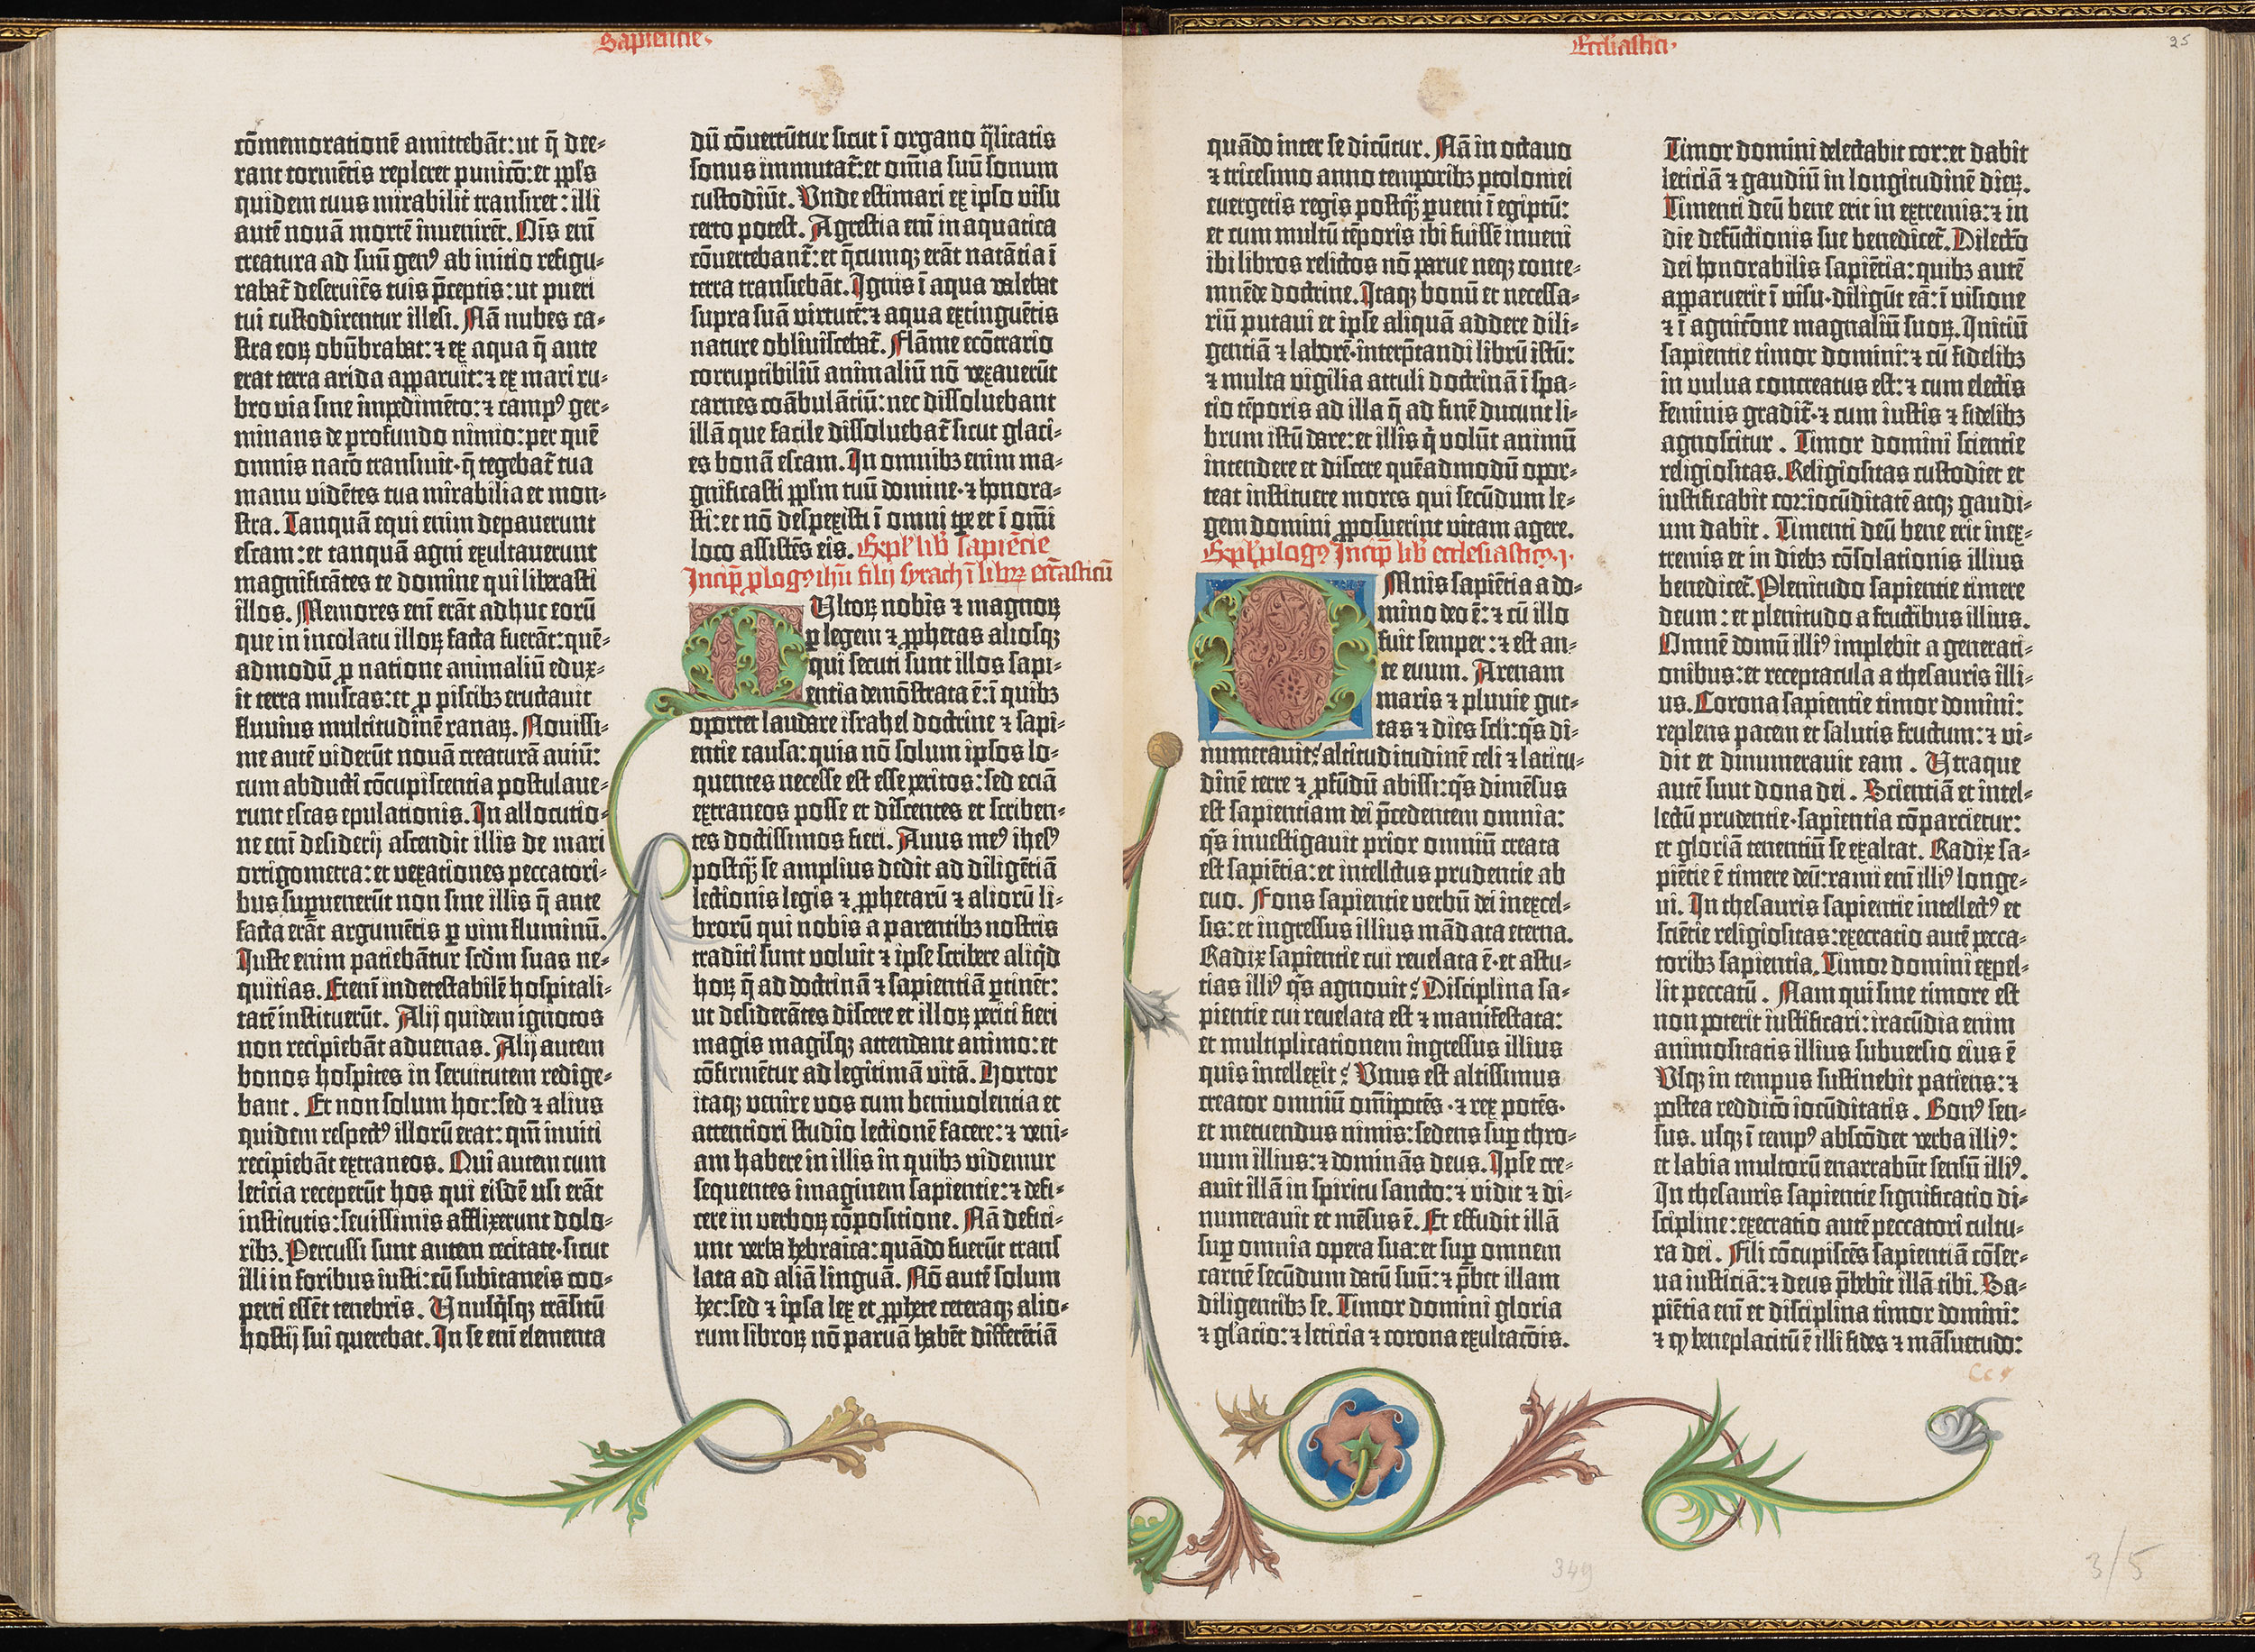 Sapientie·
cōmemorationē amittebāt: ut q̄ dee-
rant tormētis repleret punicō: et pp̄ls
quidem tuus mirabilit̄ transiret: illi
autē novā mortē invenirēt. Om̄is eni
creatura ad suū genꝰ ab initio refigu-
rabat̄ deserviēs tuis p̄ceptis: ut pueri
tui custodirentur illesi. Nā nubes ca-
stra eoꝝ obūbrabat: ⁊ ex aqua q̄ ante
erat terra arida apparuit: ⁊ ex mari ru-
bro via sine impedimēto: ⁊ campꝰ ger-
minans de profundo nimio: per quē
omnis natō transivit· q̄ tegebat̄ tua
manu vidētes tua mirabilia et mon-
stra. Tanquā equi enim depaverunt
escam: et tanquā agni exultaverunt
magnificātes te domine qui liberasti
illos. Memores enī erāt adhuc eorū
que in incolatu illoꝝ facta fuerāt: quē-
admodū ꝓ natione animaliū edux-
it terra muscas: et ꝓ piscibꝫ eructavit
fluvius multitudinē ranaꝝ. Novissi-
me autē viderūt novā creaturā aviū:
cum abducti cōcupiscentia postulave-
runt escas epulationis. In allocutio-
ne enī desiderij ascendit illis de mari
ortigometra: et vexationes peccatori-
bus supvenerūt non sine illis q̄ ante
facta erāt argumētis ꝑ vim fluminū.
Iuste enim patiebātur scd̄m suas ne-
quitias. Etenī indetestabilē hospitali-
tatē instituerūt. Alij quidem ignotos
non recipiebāt advenas. Alij autem
bonos hospites in servitutem redige-
bant. Et non solum hoc: sed ⁊ alius
quidem respectꝰ illorū erat: qm̄ inviti
recipiebāt extraneos. Qui autem cum
leticia receperūt hos qui eisdē usi erāt
institutis: sevissimis afflixerunt dolo-
ribꝫ. Percussi sunt autem cecitate· sicut
illi in foribus iusti: cū subitaneis coo-
perti essēt tenebris. Unusq̄sqꝫ trāsitū
hostij sui querebat. In se enī elementa
dū cōvertūtur sicut ī organo q̄litatis
sonus immutat̄: et om̄ia suū sonum
custodiūt. Unde estimari ex ipso visu
certo potest. Agrestia enī in aquatica
cōvertebant̄: et q̄cumqꝫ erāt natātia ī
terra transiebāt. Ignis ī aqua valebat
supra suā virtutē: ⁊ aqua extinguētis
nature obliviscebat̄. Flāme ecōtrario
corruptibiliū animaliū nō vexaverūt
carnes coābulātiū: nec dissolvebant
illā que facile dissolvebat̄ sicut glaci-
es bonā escam. In omnibꝫ enim ma-
gnificasti pp̄lm tuū domine· ⁊ honora-
sti: et nō despexisti ī omni tp̄e et ī om̄i
loco assistēs eis. Expl̄ lib̄ sapiētie
Incip̄ ꝓlogꝰ ihū filij syrach ī libꝝ eccl̄asticū
Multoꝝ nobis ⁊ magnoꝝ
ꝑ legem ⁊ ꝓphetas aliosqꝫ
qui secuti sunt illos sapi-
entia demōstrata ē: ī quibꝫ
oportet laudare israhel doctrine ⁊ sapi-
entie causa: quia nō solum ipsos lo-
quentes necesse est esse peritos: sed eciā
extraneos posse et discentes et scriben-
tes doctissimos fieri. Avus meꝰ ihesꝰ
postq̄ꝫ se amplius dedit ad diligētiā
lectionis legis ⁊ ꝓphetarū ⁊ aliorū li-
brorū qui nobis a parentibꝫ nostris
traditi sunt voluit ⁊ ipse scribere aliq̄d
hoꝝ q̄ ad doctrinā ⁊ sapientiā ꝑtinēt:
ut desiderātes discere et illoꝝ periti fieri
magis magisqꝫ attendant animo: et
cōfirmētur ad legitimā vitā. Hortor
itaqꝫ venire vos cum benivolentia et
attentiori studio lectionē facere: ⁊ veni-
am habere in illis in quibꝫ videmur
sequentes imaginem sapientie: ⁊ defi-
cere in verboꝝ cōpositione. Nā defici-
unt verba hebraica: quādo fuerūt trans
lata ad aliā linguā. Nō autē solum
hec: sed ⁊ ipsa lex et ꝓphete ceteraqꝫ alio-
rum libroꝝ nō parvā habēt differētiā
Eccl̄iastici·
25
quādo inter se dicūtur. Nā in octavo
⁊ tricesimo anno temporibꝫ ptolomei
evergetis regis postq̄ꝫ ꝑveni ī egiptū:
et cum multū tēporis ibi fuissē inveni
ibi libros relictos nō parve neqꝫ conte-
mnēde doctrine. Itaqꝫ bonū et necessa-
riū putavi et ipse aliquā addere dili-
gentiā ⁊ laborē· interp̄tandi librū istū:
⁊ multa vigilia attuli doctrinā ī spa-
tio tēporis ad illa q̄ ad finē ducunt li-
brum istū dare: et illis q̄ volūt animū
intendere et discere quēadmodū opor-
teat instituere mores qui secūdum le-
gem domini ꝓposuerint vitam agere.
Expl̄ ꝓlogꝰ Incip̄ lib̄ ecclesiasticꝰ·
Omnis sapiētia a do-
mino deo ē: ⁊ cū illo
fuit semper: ⁊ est an-
te evum. Arenam
maris ⁊ pluvie gut-
tas ⁊ dies scl̄i: q̄s di-
numeravit? altitudītudinē celi ⁊ latitu-
dinē terre ⁊ ꝓfūdū abissi: q̄s dimēsus
est sapientiam dei p̄cedentem omnia:
q̄s investigavit prior omniū creata
est sapiētia: et intellectus prudentie ab
evo. Fons sapientie verbū dei inexcel-
sis: et ingressus illius mādata eterna.
Radix sapientie cui revelata ē· et astu-
tias illiꝰ q̄s agnovit? Disciplina sa-
pientie cui revelata est ⁊ manifestata:
et multiplicationem ingressus illius
quis intellexit? Unus est altissimus
creator omniū om̄ipotēs· ⁊ rex potēs·
et metuendus nimis: sedens suꝑ thro-
num illius: ⁊ dominās deus. Ipse cre-
avit illā in spiritu sancto: ⁊ vidit ⁊ di-
numeravit et mēsus ē. Et effudit illā
suꝑ omnia opera sua: et suꝑ omnem
carnē secūdum datū suū: ⁊ p̄bet illam
diligentibꝫ se. Timor domini gloria
⁊ gl̄acio: ⁊ leticia ⁊ corona exultacōis.
Timor domini delectabit cor: et dabit
leticiā ⁊ gaudiū in longitudinē dieꝝ.
Timenti deū bene erit in extremis: ⁊ in
die defūctionis sue benedicet̄. Dilectō
dei honorabilis sapiētia: quibꝫ autē
apparuerit ī visu· diligūt eā: ī visione
⁊ ī agnitōne magnaliū suoꝝ. Iniciū
sapientie timor domini: ⁊ cū fidelibꝫ
in vulva concreatus est: ⁊ cum electis
feminis gradit̄· ⁊ cum iustis ⁊ fidelibꝫ
agnoscitur. Timor domini scientie
religiositas. Religiositas custodiet et
iustificabit cor: iocūditatē atqꝫ gaudi-
um dabit. Timenti deū bene erit inex-
tremis et in diebꝫ cōsolationis illius
benedicet̄. Plenitudo sapientie timere
deum: et plenitudo a fructibus illius.
Omnē domū illiꝰ implebit a generati-
onibus: et receptacula a thesauris illi-
us. Corona sapientie timor domini:
replens pacem et salutis fructum: ⁊ vi-
dit et dinumeravit eam. Utraque
autē sunt dona dei. Scientiā et intel-
lectū prudentie· sapientia cōpartietur:
et gloriā tenentiū se exaltat. Radix sa-
piētie ē timere deū: rami enī illiꝰ longe-
vi. In thesauris sapientie intellectꝰ et
sciētie religiositas: execratio autē pecca-
toribꝫ sapientia. Timor domini expel-
lit peccatū. Nam qui sine timore est
non poterit iustificari: iracūdia enim
animositatis illius subversio eius ē
Usqꝫ in tempus sustinebit patiens: ⁊
postea redditō iocūditatis. Bonꝰ sen-
sus. usqꝫ ī tempꝰ abscōdet verba illiꝰ:
et labia multorū enarrabūt sensū illiꝰ.
In thesauris sapientie significatio di-
scipline: execratio autē peccatori cultu-
ra dei. Fili cōcupiscēs sapientiā cōser-
va iusticiā: ⁊ deus p̄bebit illā tibi. Sa-
piētia enī et disciplina timor domini:
⁊ qꝫ beneplacitū ē illi fides ⁊ māsuetudo:
349
3/5